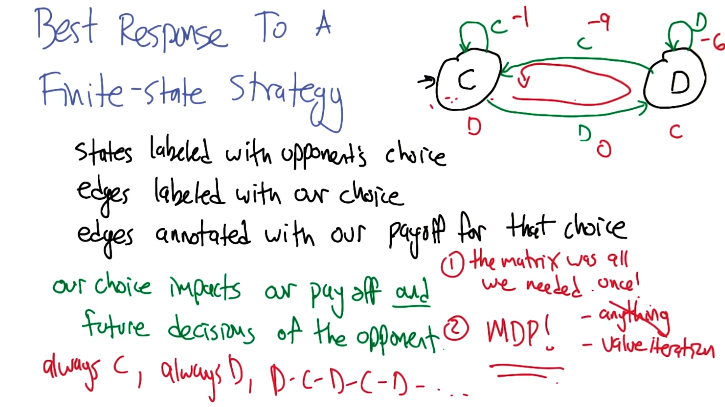 Best Response To A
Finite-state Strategy
C -1
-9
C
D
-6
C
D
D
D
0
C
states labeled with opponent's choice
edges labeled with our choice
edges annotated with our payoff for that choice
our choice impacts our payoff and
future decisions of the opponent.
① the matrix was all
we needed once!
② MDP!
- anything
- value iteration
always C, always D, D-C-D-C-D-...